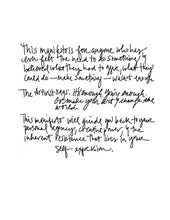 This manifesto is for anyone who has
ever felt the need to do something &
believed what they had to give, what they
could do – make something – wasn't enough
The Artivist says: It's enough. You're enough.
Go make your art & change the
world.
This manifesto will guide you back to your
personal legacy, creative power, & the
inherent resistance that lies in your
self-expression.